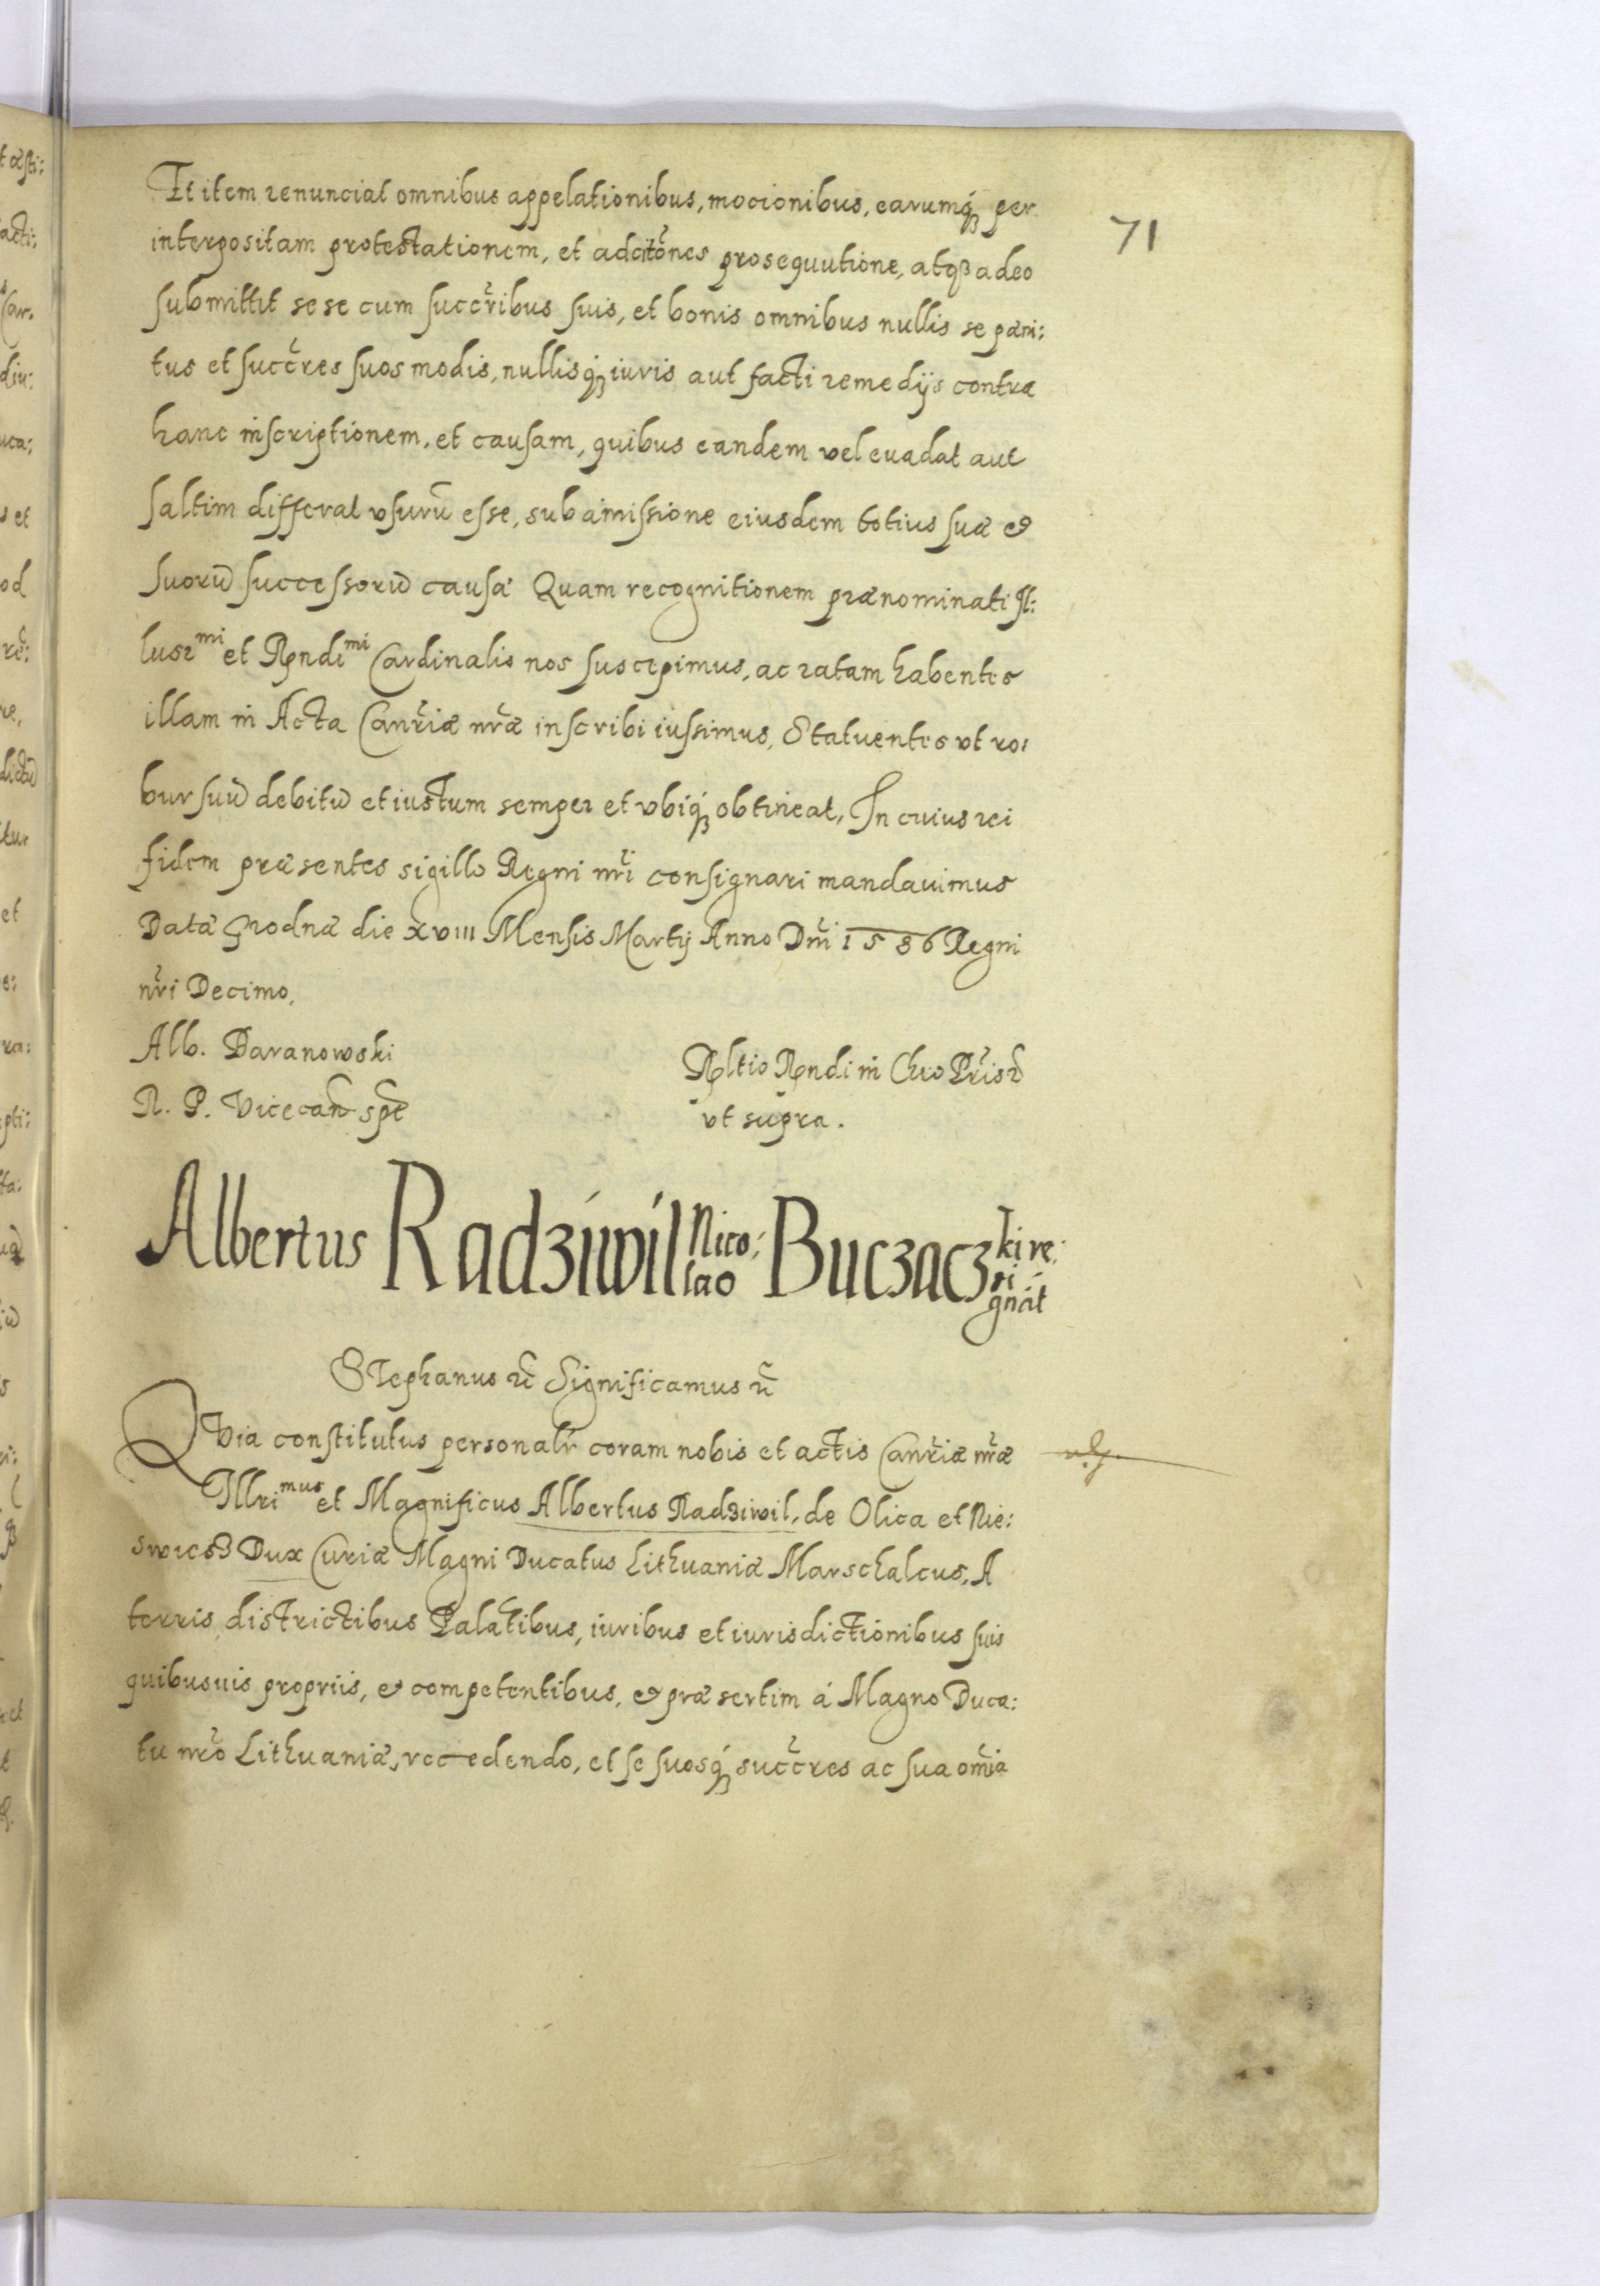 71
Et item renunciat omnibus appelationibus, mocionibus, earumq́ꝫ per
interpositam protestationem, et adcitõnes prosequutione, atqꝫ adeo
submittit sese cum succr̃ibus suis, et bonis omnibus nullis se pæni:
tus et succr̃es suos modis, nullisq́ꝫ iuris aut facti remedijs contra
hanc inscriptionem, et causam, quibus eandem vel euadat aut
saltim differat vsurũ esse, sub amissione eiusdem totius suæ et
suorũ successorũ causæ Quam recognitionem prænominati Il:
lusr^mi et Rndi^mi Cardinalis nos suscepimus, ac ratam habentes
illam in Acta Canr̃iæ nr̃æ inscribi iussimus, Statuentes vt ro:
bur suũ debitũ et iustum semper et vbiq́ꝫ obtineat, In cuius rei
fidem præsentes sigillo Regni nr̃i consignari mandauimus
Datæ Grodnæ die XVIII Mensis Martij Anno Dñi 1586 Regni
nr̃i Decimo,
Alb. Baranowski
R. P. Vicecañ spẽ
Rltio Rndi in Chro Pr̃is ꝛc̃
vt supra.
Albertus Radziwil Nico:lao Buczaczki re:signat
Stephanus ꝛc̃ Significamus ꝛc̃
QVia constitutus personalr̃ coram nobis et actis Canr̃iæ nr̃æ
Illri^mus et Magnificus Albertus Radziwil, de Olica et Nie:
swiesz Dux Curiæ Magni Ducatus Lithuaniæ Marschalcus, A
terris districtibus Palatibus, iuribus et iurisdictionibus suis
quibusuis propriis, et competentibus, et præsertim á Magno Duca:
tu nr̃o Lithuaniæ, recedendo, et se suosq́ꝫ succr̃es ac sua om̃ia